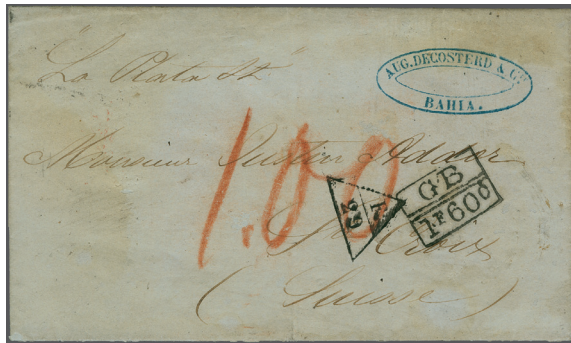 "La Plata St"
AUG. DECOSTERD & Cie
BAHIA.
Monsieur Justin Addor
1.00
GB
1F60c
Ste Croix
(Suisse)